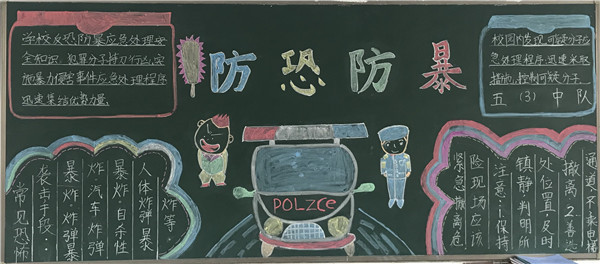 学校反恐防暴应急处理安
全知识，犯罪分子持刀行凶，实
施暴力侵害事件应急处理程序
迅速集结优势力量.
防恐防暴
校园内发现可疑分子应
急处理程序，迅速采取
措施，控制可疑分子
五（3）中队
常见恐怖
袭击手段…
暴炸.炸弹暴
炸汽车炸弹
暴炸.自杀性
人体炸弹暴
炸等.
POLZCe
紧急撤离危
险现场应该
注意:1.保持
镇静判明所
处位置,及时
撤离2.善选
通道,不乘电梯